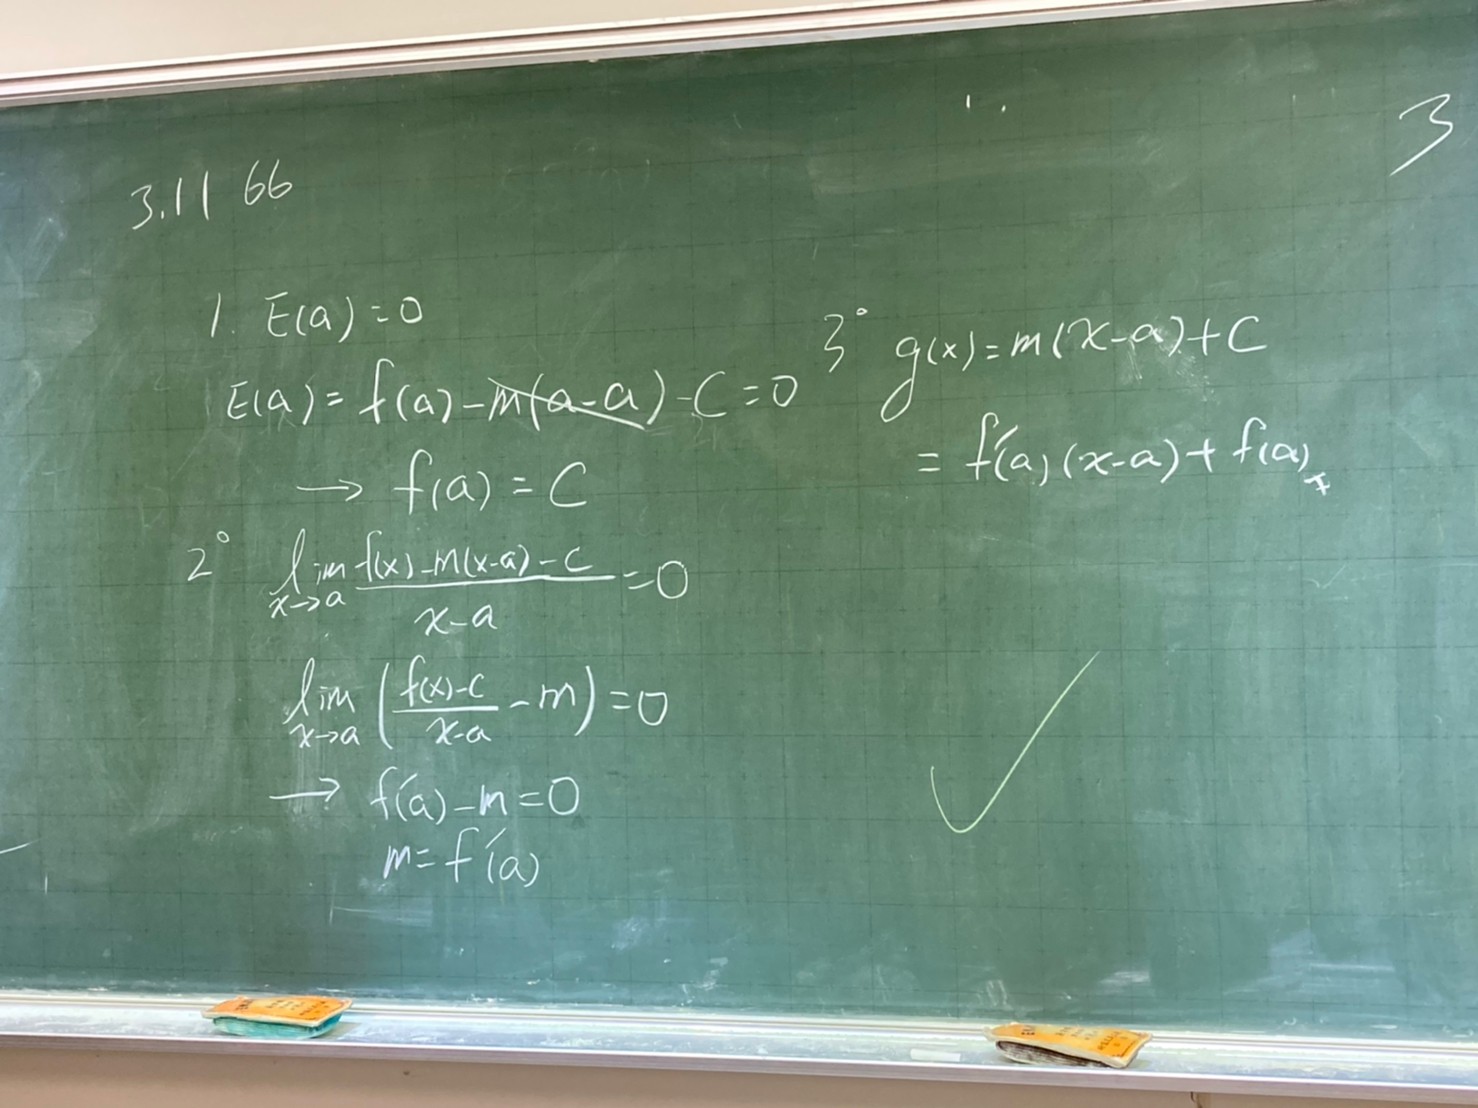 3
3.11 66
1. E(a)=0
E(a)= f(a)-m(a-a)-C=0
→ f(a)=C
2° lim x→a (f(x)-m(x-a)-C)/(x-a) =0
lim x→a ((f(x)-C)/(x-a) -m)=0
→ f'(a)-m=0
m=f'(a)
3° g(x)=m(x-a)+C
= f'(a)(x-a)+f(a)